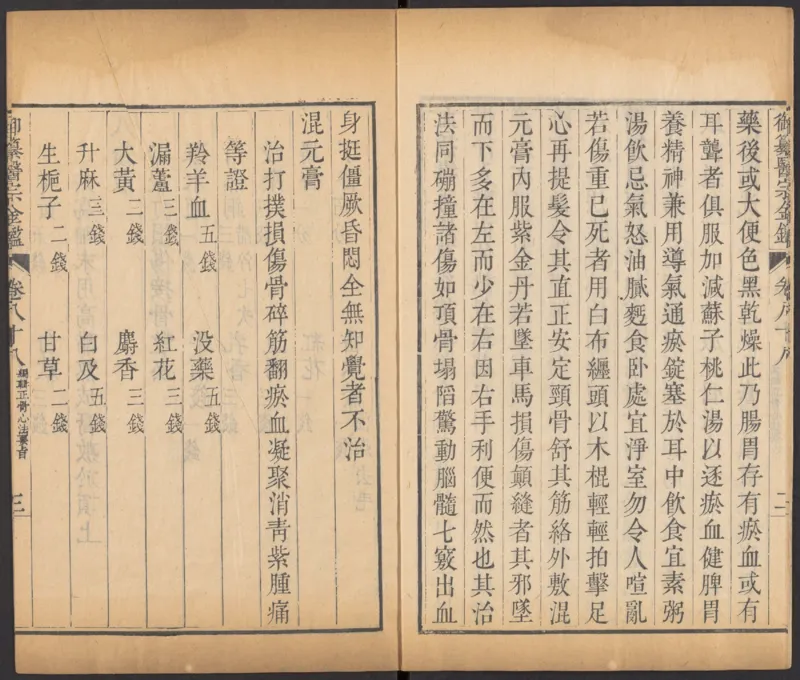 御纂醫宗金鑑
卷八十八
二
藥後或大便色黑乾燥此乃腸胃存有瘀血或有
耳聾者俱服加減蘇子桃仁湯以逐瘀血健脾胃
養精神兼用導氣通瘀錠塞於耳中飲食宜素粥
湯飲忌氣怒油膩麪食臥處宜淨室勿令人喧亂
若傷重已死者用白布纏頭以木棍輕輕拍擊足
心再提髮令其直正安定頸骨舒其筋絡外敷混
元膏內服紫金丹若墜車馬損傷顚縫者其邪墜
而下多在左而少在右因右手利便而然也其治
法同磞撞諸傷如頂骨塌陷驚動腦髓七竅出血
身挺僵厥昏悶全無知覺者不治
混元膏
治打撲損傷骨碎筋翻瘀血凝聚消靑紫腫痛
等證
羚羊血五錢 沒藥五錢
漏蘆三錢 紅花三錢
大黃二錢 麝香三錢
升麻三錢 白及五錢
生梔子二錢 甘草二錢
御纂醫宗金鑑
卷八十八
編輯正骨心法要旨
三